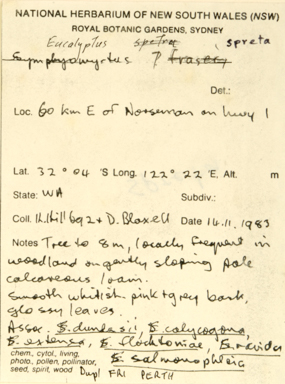 NATIONAL HERBARIUM OF NEW SOUTH WALES (NSW)
ROYAL BOTANIC GARDENS, SYDNEY
Eucalyptus spreta spreta
Symphyomyrtus ? fraseri
Det.:
Loc. 60 km E of Norseman on hwy 1
Lat. 32° 04 'S Long. 122° 22 'E, Alt. m
State: WA Subdiv.:
Coll. K. Hill 692 & D. Blaxell Date 14.11.1983
Notes Tree to 8m, locally frequent in
woodland on gently sloping pale
calcareous loam.
Smooth whitish pink & grey bark,
glossy leaves.
Assoc. E. dundasii, E. calycogona,
E. extensa, E. flocktoniae, E. ravida
E. salmonophloia
chem, cytol, living,
photo, pollen, pollinator,
seed, spirit, wood Dupl FRI PERTH